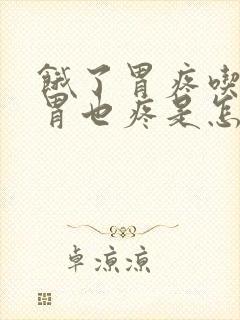 饿了胃疼喫
胃也疼是怎
卓凉凉